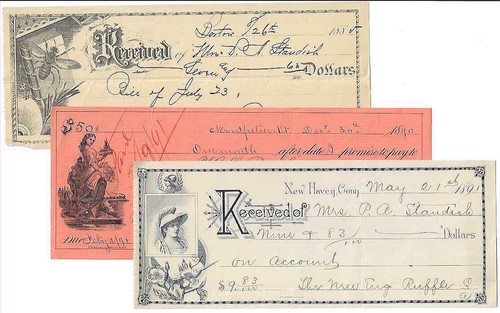 Boston 5/26th 1885
Received of Mrs. P. A. Standish
Seven 60/ Dollars
Bill of July 23,
$50
Paid
Montpelier Vt. Dec 30th 1890
One month after date I promise to pay to
Due Feby 2/91
New Haven, Conn. May 21st 1891
Received of Mrs. P. A. Standish
Nine & 83/100 Dollars
on account
$9.83/100 The New Eng Ruffle Co